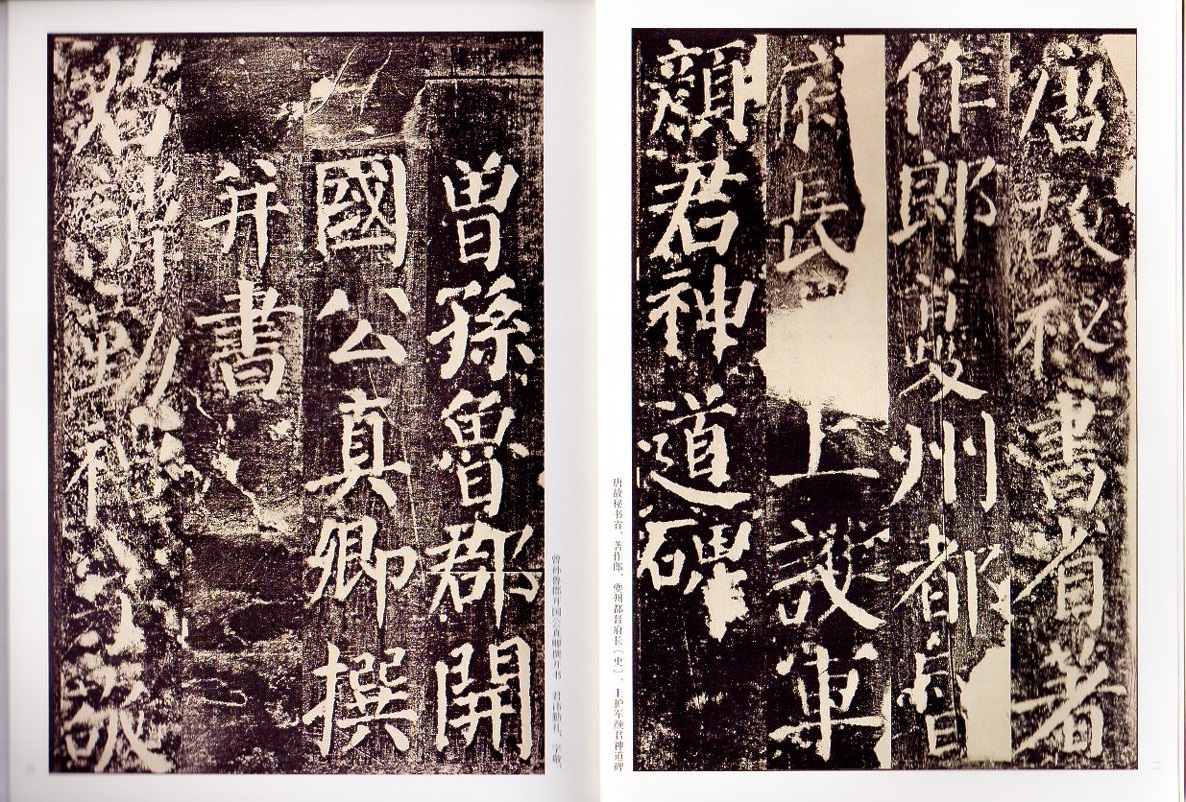 唐故秘書省著
作郎夔州都督
府長上護軍
顏君神道碑
唐故秘书省、著作郎、夔州都督府长〔史〕、上护军颜君神道碑
曾孫魯郡開
國公真卿撰
并書
君諱勤禮字敬
曾孙鲁郡开国公真卿撰并书 君讳勤礼,字敬,
二